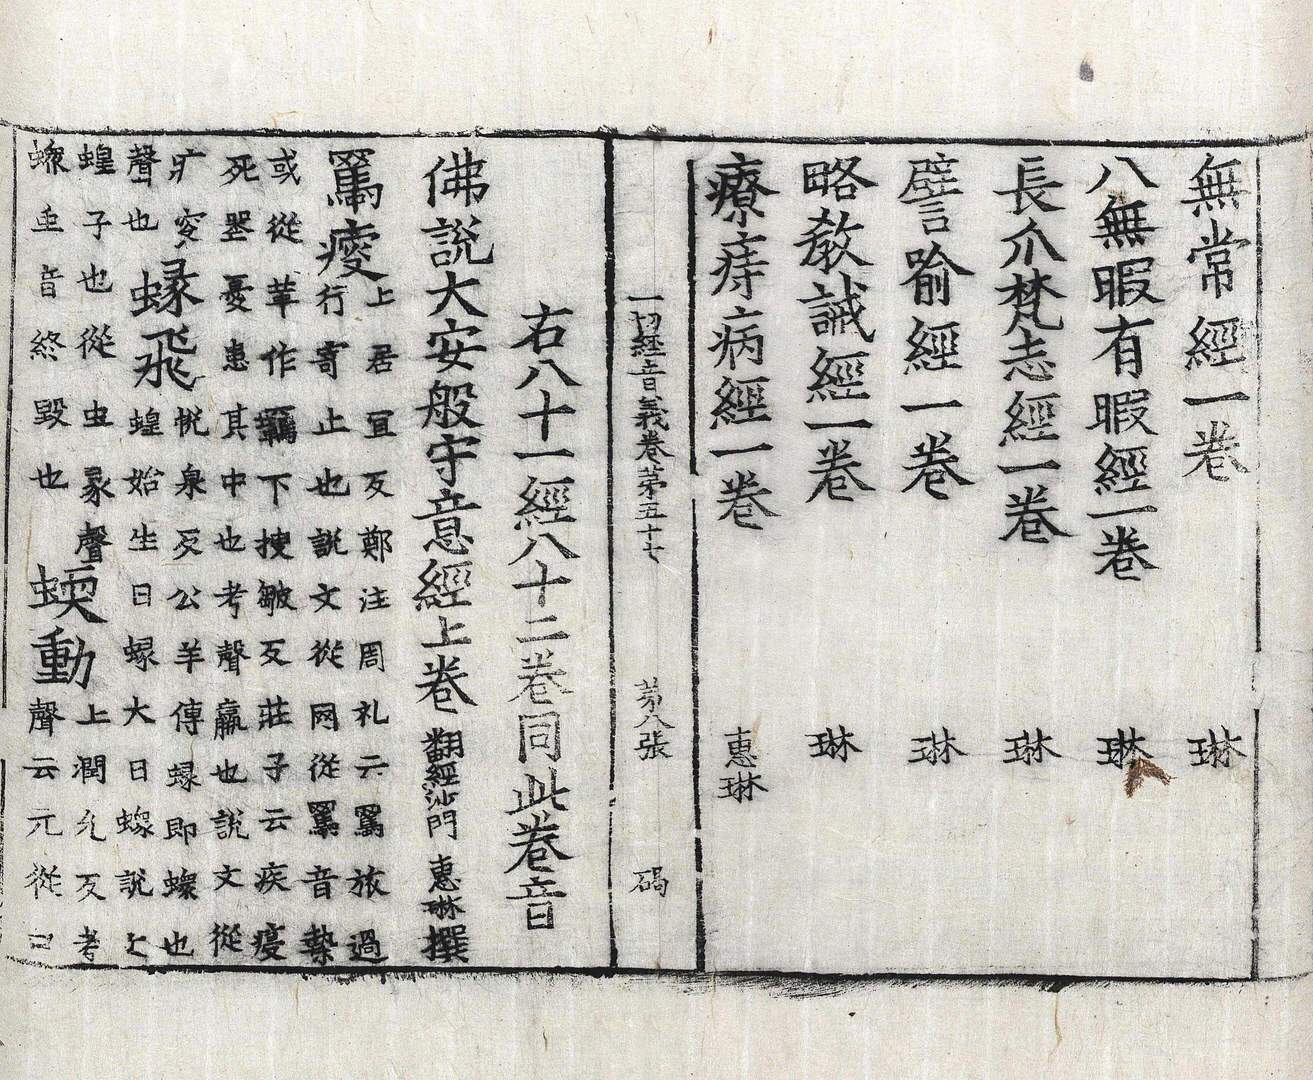 無常經一卷 琳
八無暇有暇經一卷 琳
長爪梵志經一卷 琳
譬喻經一卷 琳
略教誡經一卷 琳
療痔病經一卷 惠琳
一切經音義卷苐五十七 苐八張 碣
右八十一經八十二卷同此卷音
佛說大安般守意經上卷 翻經沙門 惠琳撰
羁瘦 上居冝反鄭注周礼云羁旅過
行寄止也說文從网從羁音執
或從革作羈下搜皺反莊子云疾瘦
死喪憂患其中也考聲羸也說文從
疒叜 蝝飛 恱泉反公羊傳蝝即螺也
聲也 蝗始生曰蝝大曰螺說上
蝗子也從虫彖聲 蝡動 上潤允反考
螺虫音終毀也 聲云元從口